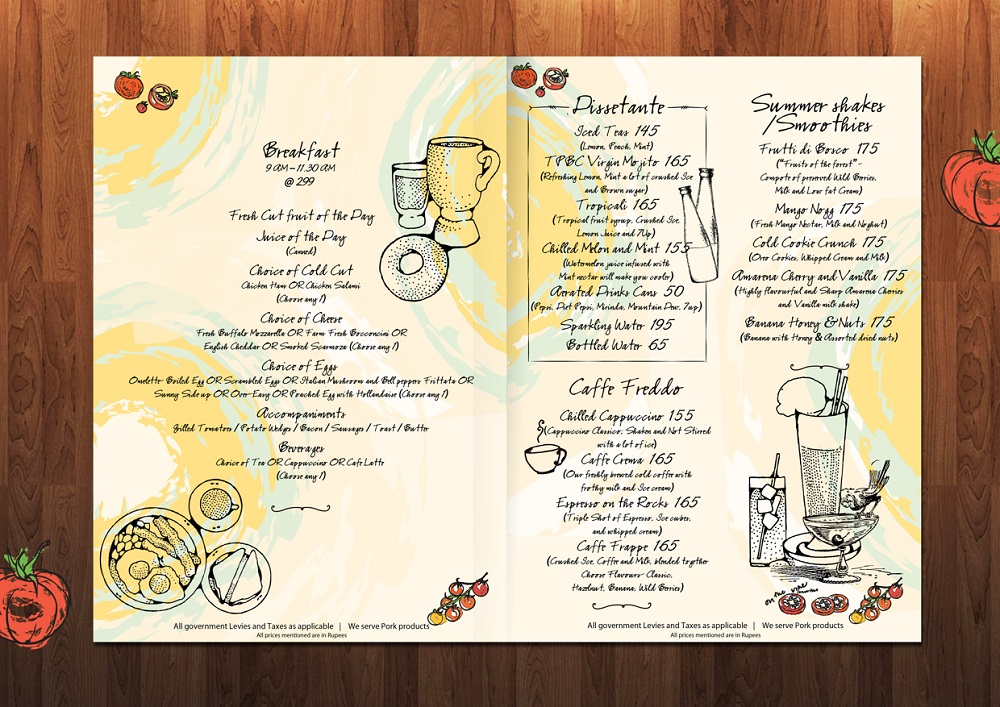 Breakfast
9 AM-11.30 AM
@ 299
Fresh Cut fruit of the Day
Juice of the Day
(Canned)
Choice of Cold Cut
Chicken Ham OR Chicken Salami
(Choose any 1)
Choice of Cheese
Fresh Buffalo Mozzarella OR Farm Fresh Bocconcini OR
English Cheddar OR Smoked Scarmoza (Choose any 1)
Choice of Eggs
Omelette Boiled Egg OR Scrambled Eggs OR Italian Mushroom and Bell peppers Frittata OR
Sunny Side up OR Over Easy OR Poached Egg with Hollandaise (Choose any 1)
Accompaniments
Grilled Tomatoes / Potato Wedges / Bacon / Sausages / Toast / Butter
Beverages
Choice of Tea OR Cappuccino OR Cafe Latte
(Choose any 1)
All government Levies and Taxes as applicable | We serve Pork products
All prices mentioned are in Rupees
Dissetante
Iced Teas 145
(Lemon, Peach, Mint)
TPBC Virgin Mojito 165
(Refreshing Lemon, Mint a lot of crushed Ice
and Brown sugar)
Tropicali 165
(Tropical fruit syrup, Crushed Ice,
Lemon Juice and 7Up)
Chilled Melon and Mint 155
(Watermelon juice infused with
Mint nectar will make you cooler)
Aerated Drinks Cans 50
(Pepsi, Diet Pepsi, Mirinda, Mountain Dew, 7up)
Sparkling Water 195
Bottled Water 65
Caffe Freddo
Chilled Cappuccino 155
(Cappuccino Classico, Shaken and Not Stirred
with a lot of ice)
Caffe Crema 165
(Our freshly brewed cold coffee with
frothy milk and Ice cream)
Espresso on the Rocks 165
(Triple Shot of Espresso, Ice cubes,
and whipped cream)
Caffe Frappe 165
(Crushed Ice, Coffee and Milk, blended together
Choose Flavours- Classic,
Hazelnut, Banana, Wild Berries)
Summer shakes
/Smoothies
Frutti di Bosco 175
("Fruits of the forest" -
Compote of preserved Wild Berries,
Milk and Low fat Cream)
Mango Nogg 175
(Fresh Mango Nectar, Milk and Noghut)
Cold Cookie Crunch 175
(Oreo Cookies, Whipped Cream and Milk)
Amarena Cherry and Vanilla 175
(Highly flavourful and Sharp Amarena Cherries
and Vanilla milk shake)
Banana Honey & Nuts 175
(Banana with Honey & Assorted dried nuts)
on the vine
All government Levies and Taxes as applicable | We serve Pork products
All prices mentioned are in Rupees